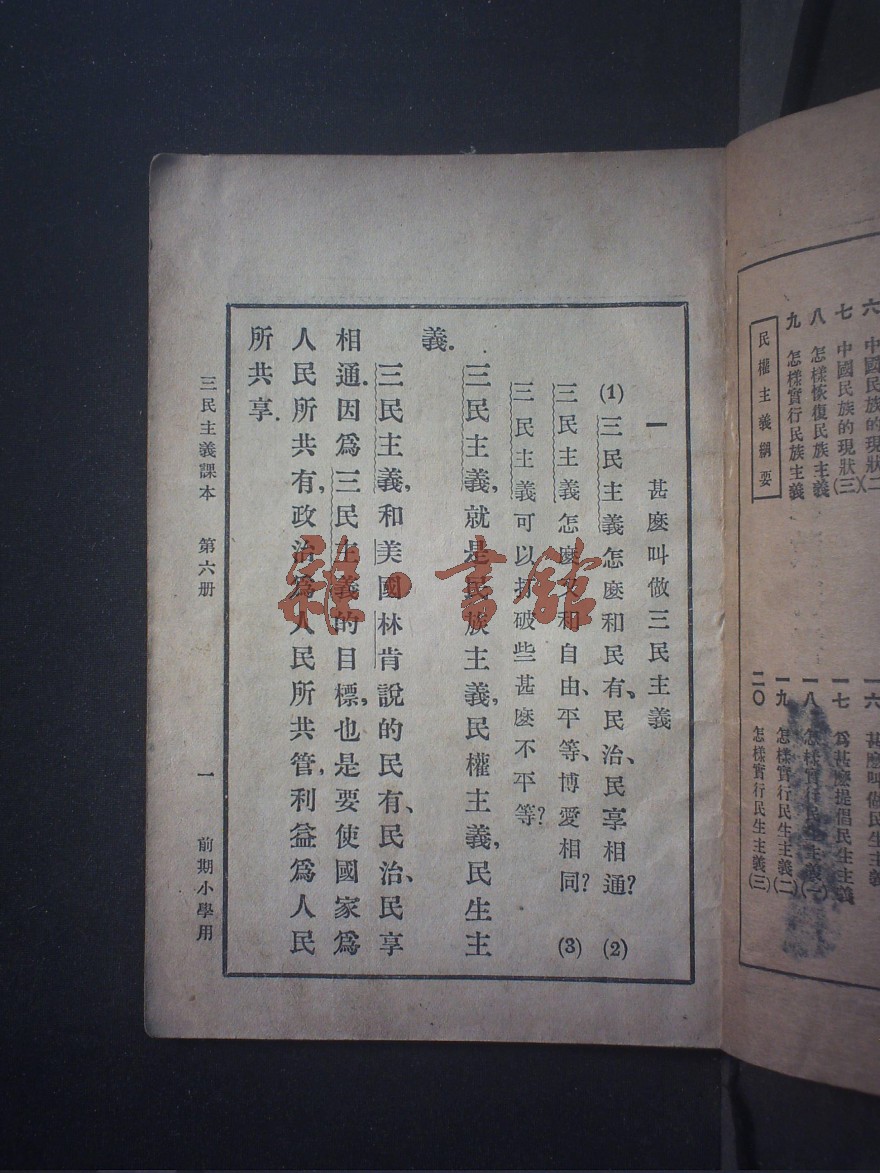 六 中國民族的現狀(二)
七 中國民族的現狀(三)
八 怎樣恢復民族主義
九 怎樣實行民族主義
民權主義綱要
一六 甚麽叫做民生主義
一七 爲甚麽提倡民生主義
一八 怎樣實行民生主義(一)
一九 怎樣實行民生主義(二)
二〇 怎樣實行民生主義(三)
一 甚麽叫做三民主義
(1)三民主義怎麽和民有、民治、民享相通?(2)
三民主義怎麽又和自由、平等、博愛相同?(3)
三民主義可以打破些甚麽不平等?
三民主義,就是民族主義,民權主義,民生主
義.
三民主義,和美國林肯說的民有、民治、民享
相通.因爲三民主義的目標,也是要使國家爲
人民所共有,政治爲人民所共管,利益爲人民
所共享.
三民主義課本 第六册 一 前期小學用
雜·書館